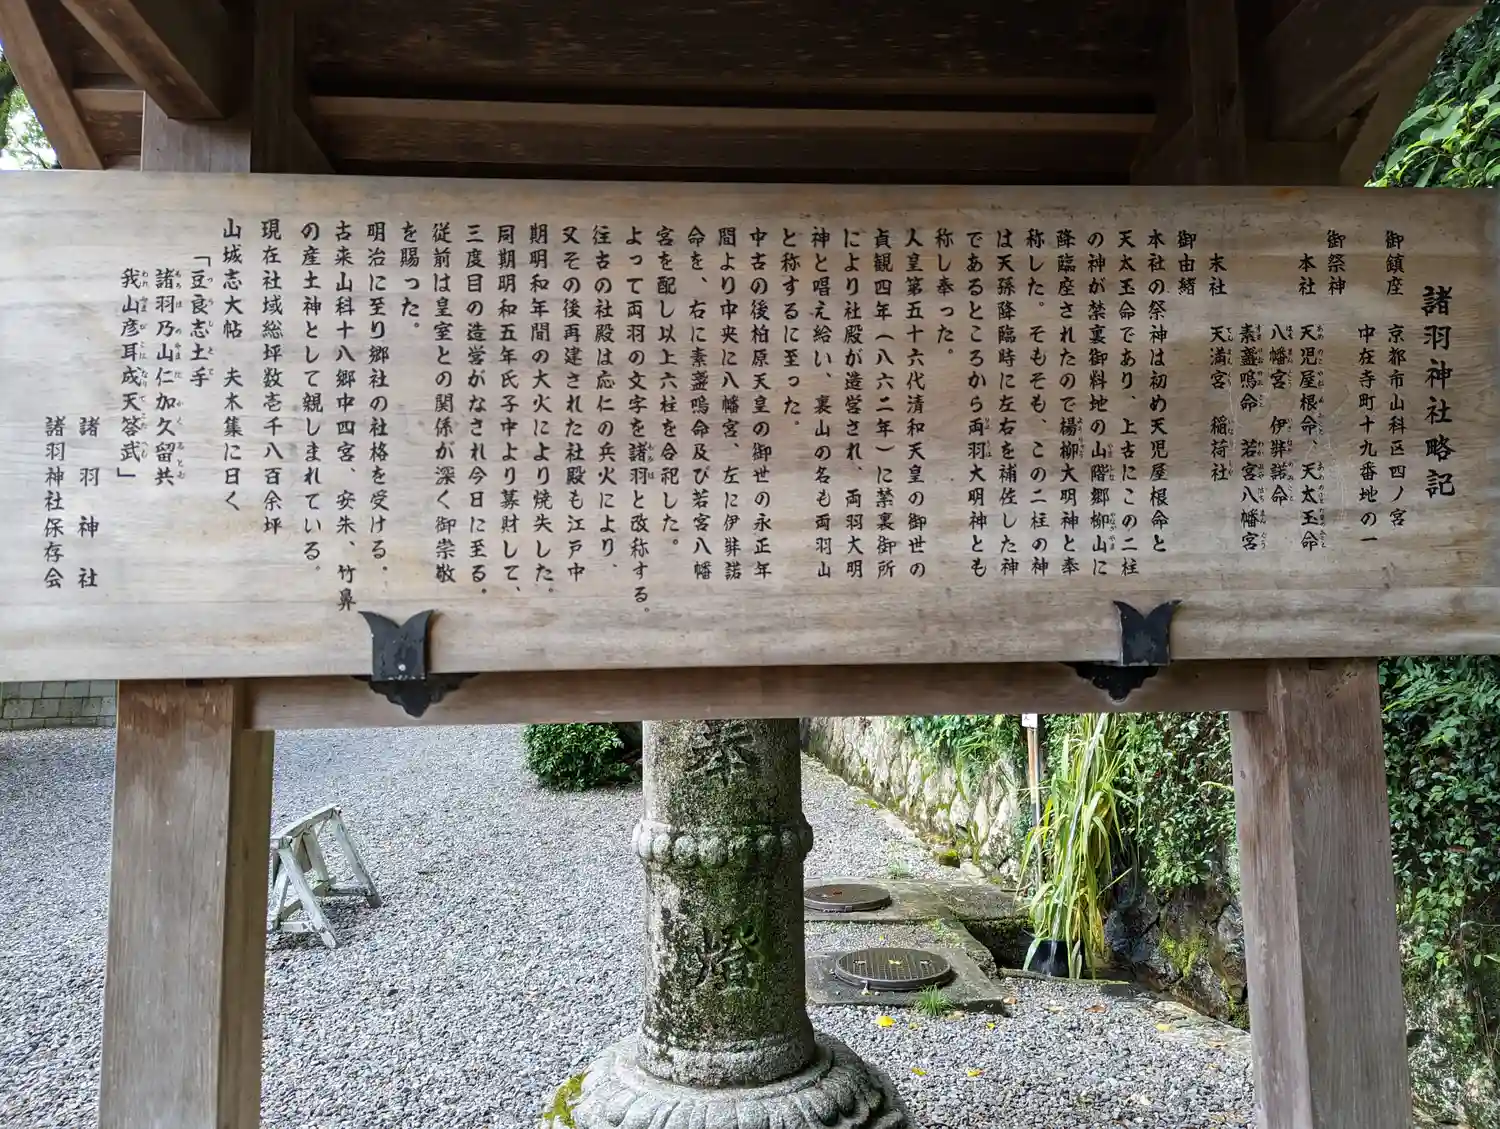 諸羽神社略記
御鎮座　京都市山科区四ノ宮
中在寺町十九番地の一
御祭神
本社　天児屋根命、天太玉命
八幡宮　伊弉諾命
素盞嗚命　若宮八幡宮
末社　天満宮　稲荷社
御由緒
本社の祭神は初め天児屋根命と
天太玉命であり、上古にこの二柱
の神が禁裏御料地の山階郷柳山に
降臨座されたので楊柳大明神と奉
称した。そもそも、この二柱の神
は天孫降臨時に左右を補佐した神
であるところから両羽大明神とも
称し奉った。
人皇第五十六代清和天皇の御世の
貞観四年（八六二年）に禁裏御所
により社殿が造営され、両羽大明
神と唱え給い、裏山の名も両羽山
と称するに至った。
中古の後柏原天皇の御世の永正年
間より中央に八幡宮、左に伊弉諾
命を、右に素盞嗚命及び若宮八幡
宮を配し以上六柱を合祀した。
よって両羽の文字を諸羽と改称する。
往古の社殿は応仁の兵火により、
又その後再建された社殿も江戸中
期明和年間の大火により焼失した。
同期明和五年氏子中より募財して、
三度目の造営がなされ今日に至る。
従前は皇室との関係が深く御崇敬
を賜った。
明治に至り郷社の社格を受ける。
古来山科十八郷中四宮、安朱、竹鼻
の産土神として親しまれている。
現在社域総坪数壱千八百余坪
山城志大帖　夫木集に曰く
「豆良志土手
諸羽乃山仁加久留共
我山彦耳成天答武」
諸羽神社
諸羽神社保存会
奉
燈